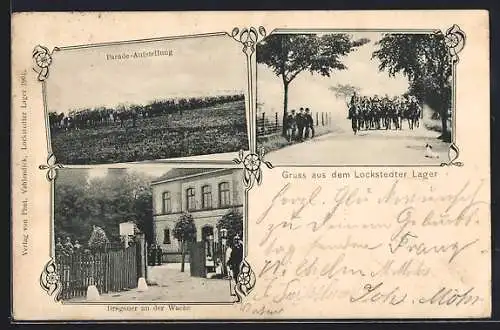 Parade-Aufstellung
Gruss aus dem Lockstedter Lager
Dragoner an der Wache
Verlag von Phot. Vahlendick, Lockstedter Lager
Herzl. Glückwunsch
zu Deinem Geburts-
tag senden Franz
Wilhelm
Joh. Mohr